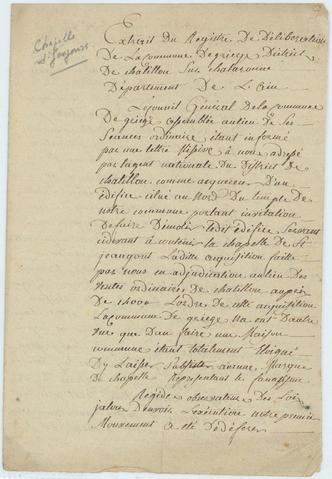 Chapelle
St Jengoux
Extrait Du Registre De Déliberation
De La commune de griege District
De chatillon sur chalaronne
Département De L'ain
Le Conseil Général de la commune
De griege assemblée au lieu de Ses
Séances ordinaire étant informé
par une lettre Missive à nous adressé
par lagent nationale Du District de
chatillon comme acquereur D'un
édifice situé au Nord Du temple de
notre commune portant invitation
De faire Démolir ledit édifice Servant
cidevant à contenir la chapelle De St
jeangoux Laditte acquisition faitte
par nous en adjudication au lieu des
ventes ordinaires De chatillon au prix
De 1600# L'ordre de cette acquisition
La commune De griege na eut Dautre
vue que Dan faire une Maison
commune étant totalement Eloigné
Dy Laisser Subsister aucune Marque
De chapelle Représentant le fanatisme
Rigide observateur Des Loix
jaloux D'en voir L'exécution notre premier
Mouvement a été De déferer